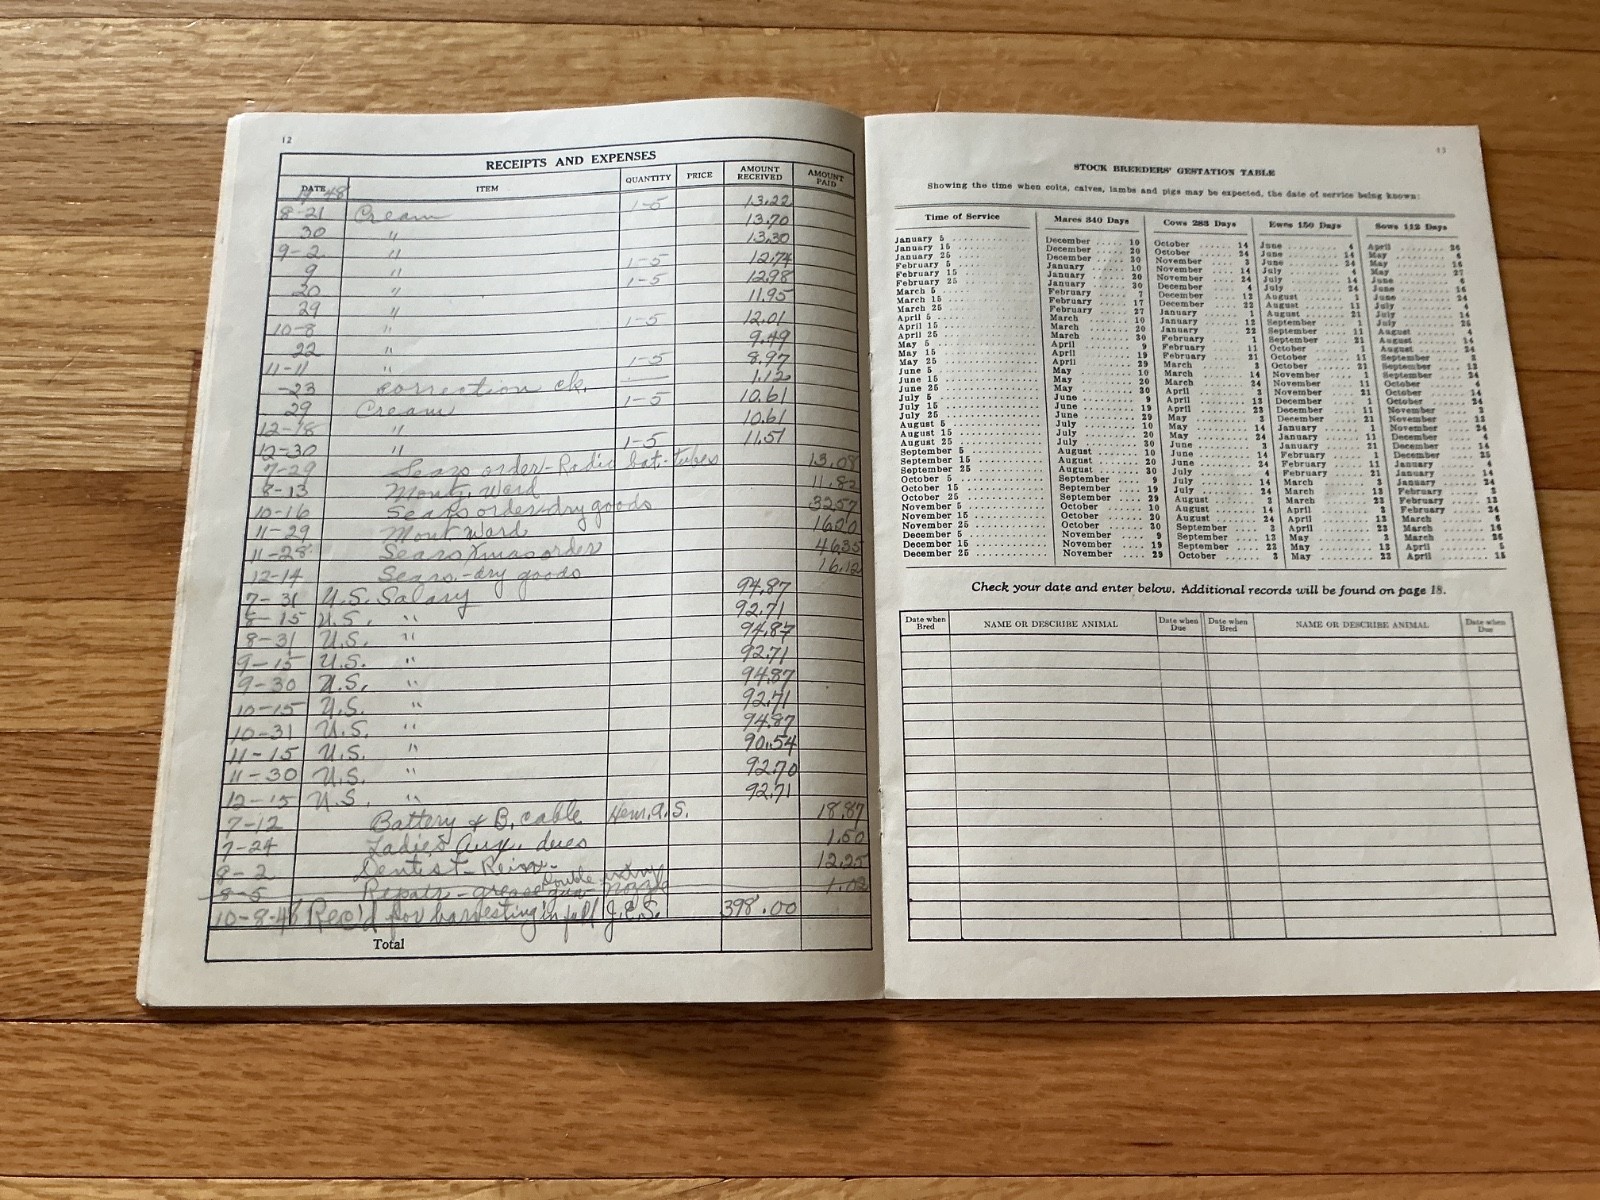 12
RECEIPTS AND EXPENSES
DATE ITEM QUANTITY PRICE AMOUNT RECEIVED AMOUNT PAID
8-21 Cream 1-5 13.22
30 " 13.70
9-2 " 13.30
9 " 1-5 12.74
20 " 1-5 12.98
29 " 11.95
10-8 " 1-5 12.01
22 " 9.49
11-11 " 1-5 8.97
-23 correction ck. 1.12
29 Cream 1-5 10.61
12-18 " 10.61
12-30 " 1-5 11.57
7-29 Sears order-Radio bat.-tubes 13.08
8-13 Mont. Ward 11.82
10-16 Sears order-dry goods 32.57
11-29 Mont Ward 16.00
11-28 Sears Xmas order 46.35
12-14 Sears-dry goods 16.12
7-31 U.S. Salary 94.87
8-15 U.S. " 92.71
8-31 U.S. " 94.87
9-15 U.S. " 92.71
9-30 U.S. " 94.87
10-15 U.S. " 92.71
10-31 U.S. " 94.87
11-15 U.S. " 90.54
11-30 U.S. " 92.70
12-15 U.S. " 92.71
7-12 Battery & B. cable 18.87
7-24 Ladies Aux. dues 1.50
8-2 Dentist- 12.25
Double entry
8-5 Repair-grease gun Nozzle 1.02
10-8-48 Rec'd for harvesting in fall J.E.S. 398.00
Total
13
STOCK BREEDERS' GESTATION TABLE
Showing the time when colts, calves, lambs and pigs may be expected, the date of service being known:
Time of Service Mares 340 Days Cows 283 Days Ewes 150 Days Sows 112 Days
January 5 December 10 October 14 June 4 April 26
January 15 December 20 October 24 June 14 May 6
January 25 December 30 November 3 June 24 May 16
February 5 January 10 November 14 July 4 May 27
February 15 January 20 November 24 July 14 June 6
February 25 January 30 December 4 July 24 June 16
March 5 February 7 December 12 August 1 June 24
March 15 February 17 December 22 August 11 July 4
March 25 February 27 January 1 August 21 July 14
April 5 March 10 January 12 September 1 July 25
April 15 March 20 January 22 September 11 August 4
April 25 March 30 February 1 September 21 August 14
May 5 April 9 February 11 October 1 August 24
May 15 April 19 February 21 October 11 September 3
May 25 April 29 March 3 October 21 September 13
June 5 May 10 March 14 November 1 September 24
June 15 May 20 March 24 November 11 October 4
June 25 May 30 April 3 November 21 October 14
July 5 June 9 April 13 December 1 October 24
July 15 June 19 April 23 December 11 November 3
July 25 June 29 May 3 December 21 November 13
August 5 July 10 May 14 January 1 November 24
August 15 July 20 May 24 January 11 December 4
August 25 July 30 June 3 January 21 December 14
September 5 August 10 June 14 February 1 December 25
September 15 August 20 June 24 February 11 January 4
September 25 August 30 July 4 February 21 January 14
October 5 September 9 July 14 March 3 January 24
October 15 September 19 July 24 March 13 February 3
October 25 September 29 August 3 March 23 February 13
November 5 October 10 August 14 April 3 February 24
November 15 October 20 August 24 April 13 March 6
November 25 October 30 September 3 April 23 March 16
December 5 November 9 September 13 May 3 March 26
December 15 November 19 September 23 May 13 April 5
December 25 November 29 October 3 May 23 April 15
Check your date and enter below. Additional records will be found on page 18.
Date when Bred NAME OR DESCRIBE ANIMAL Date when Due Date when Bred NAME OR DESCRIBE ANIMAL Date when Due